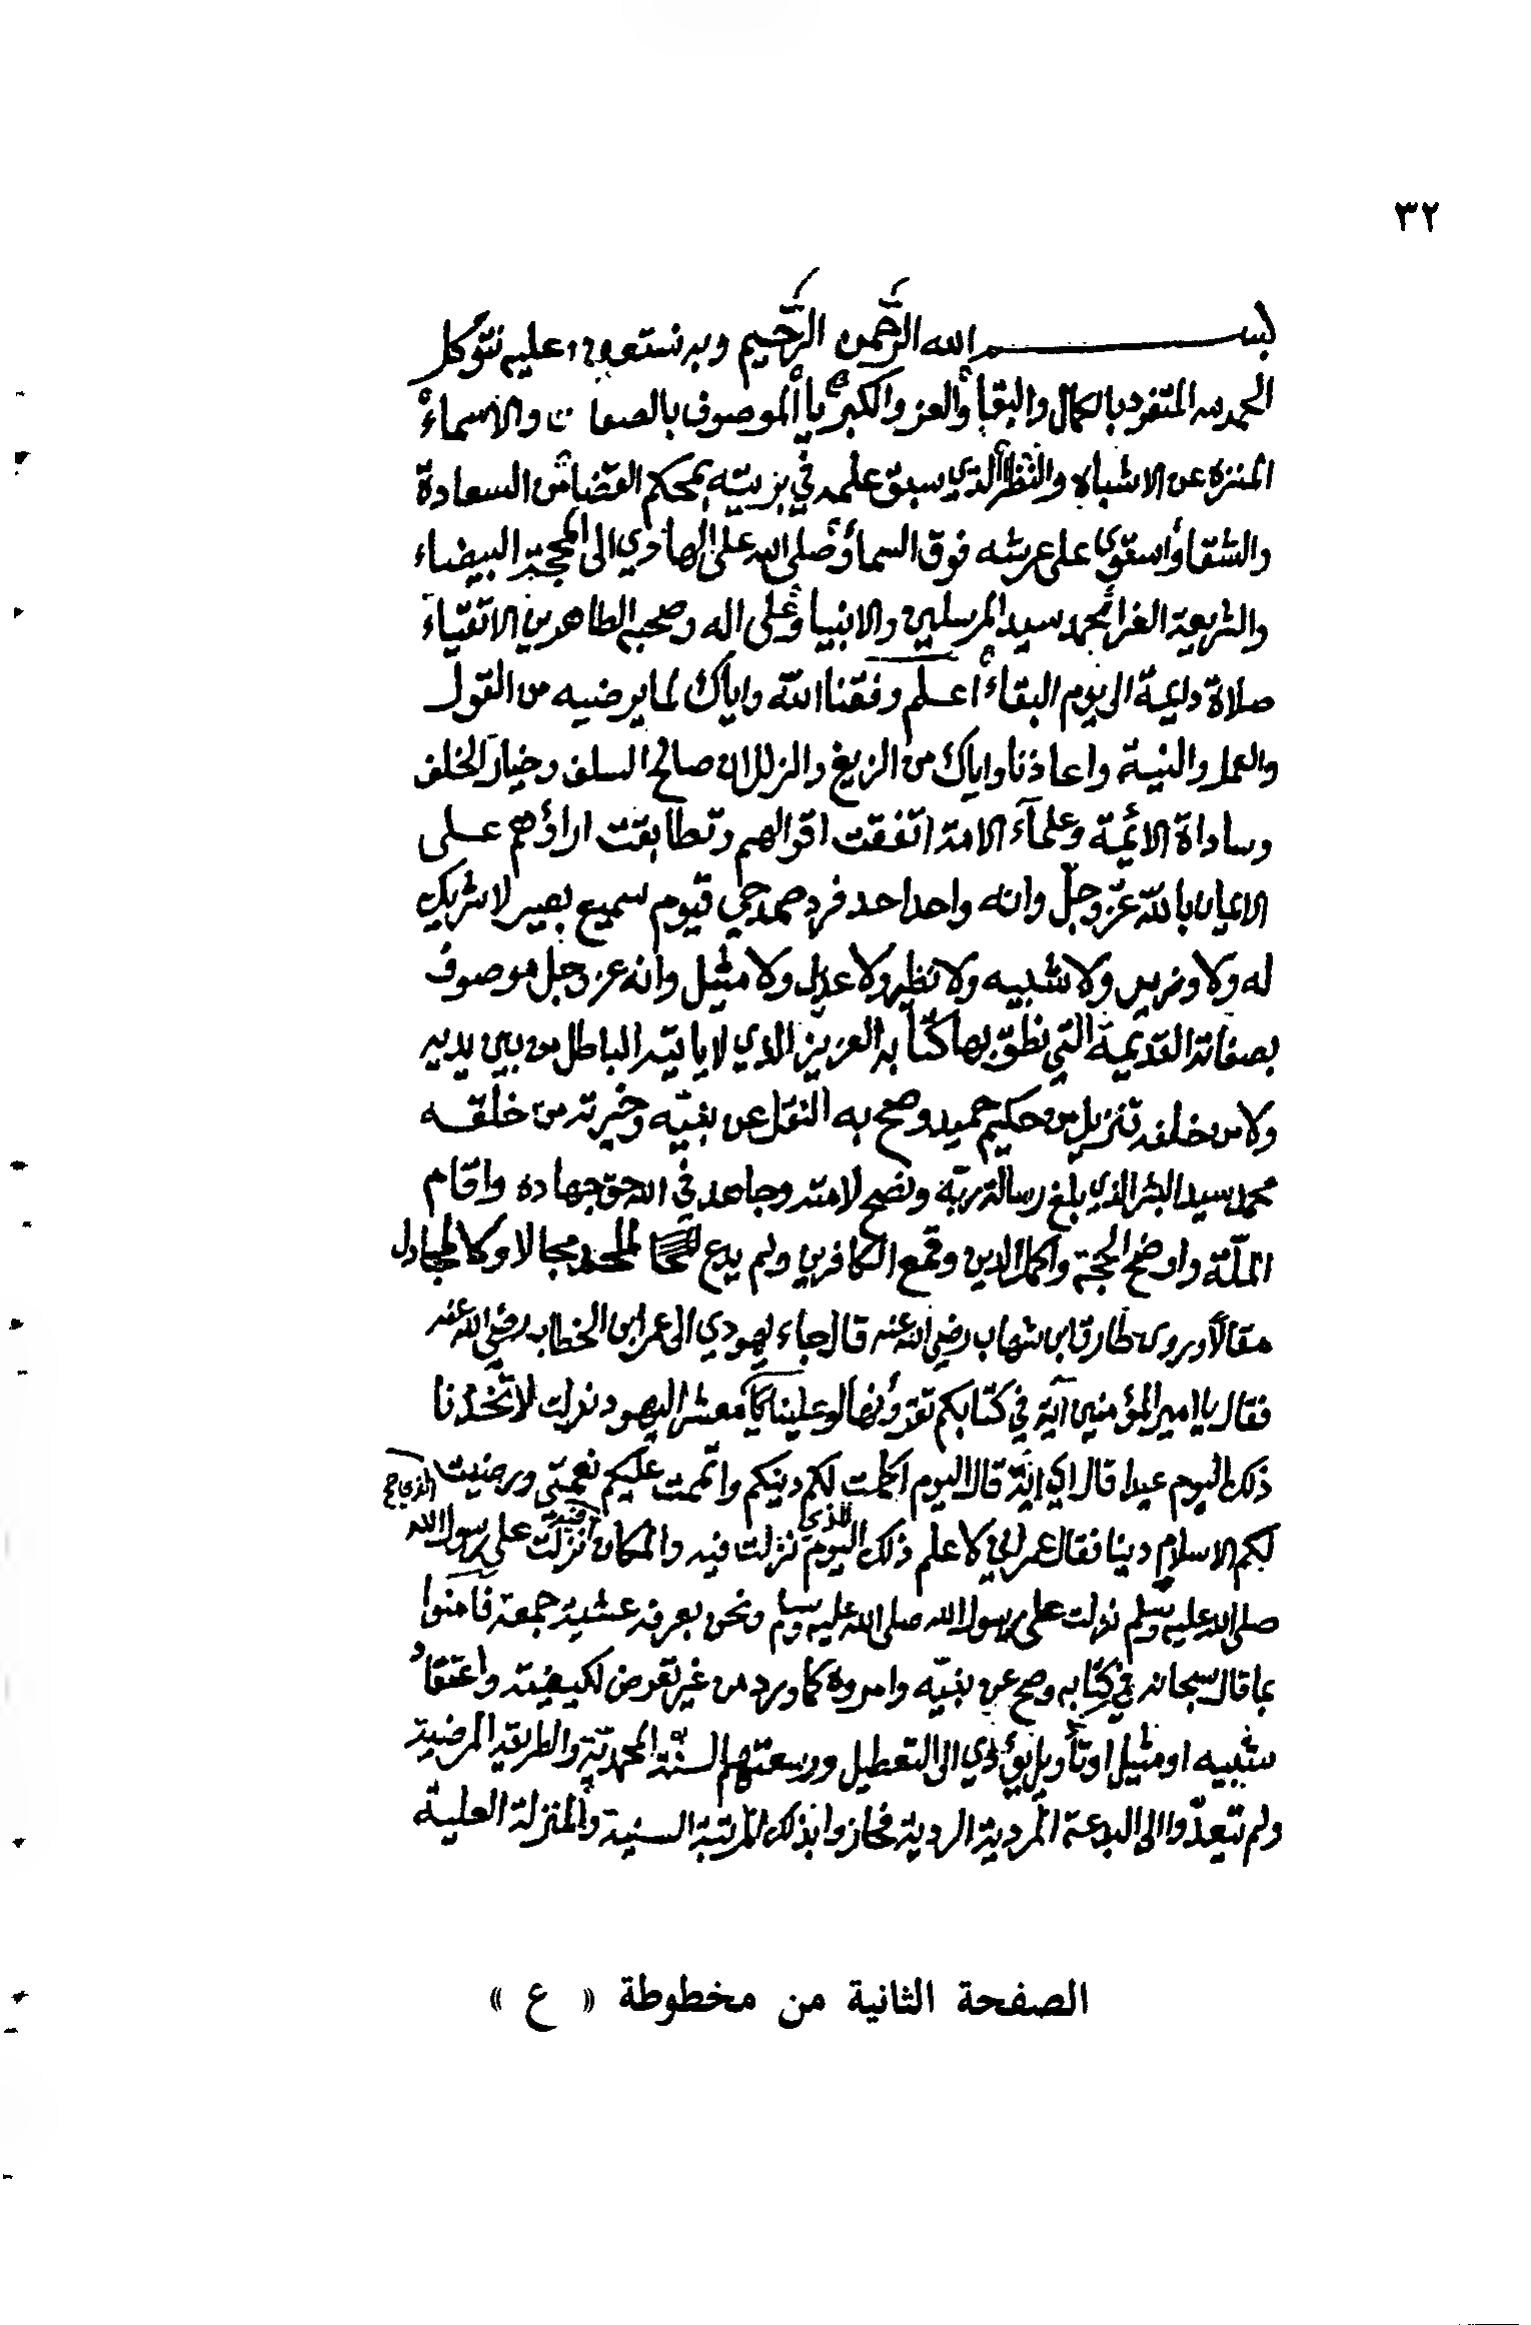 ٣٢
بسم الله الرحمن الرحيم وبه نستعين وعليه نتوكل
الحمد لله المتفرد بالكمال والبقاء والعز والكبرياء الموصوف بالصفات والاسماء
المنزه عن الاشباه والنظراء الذي سبق علمه في بريته بمحكم القضاء من السعادة
والشقاء واستوى على عرشه فوق السماء وصلى الله على الهادي الى المحجة البيضاء
والشريعة الغراء محمد سيد المرسلين والانبياء وعلى اله وصحبه الطاهرين الاتقياء
صلاة دايمة الى يوم البقاء اعلم وفقنا الله واياك لما يرضيه من القول
والعمل والنية واعاذنا واياك من الزيغ والزلل ان صالح السلف وخيار الخلف
وساداة الائمة وعلماء الامة اتفقت اقوالهم وتطابقت اراؤهم على
الايمان بالله عز وجل وانه واحد احد فرد صمد حي قيوم سميع بصير لا شريك
له ولا وزير ولا شبيه ولا نظير ولا عديل ولا مثيل وانه عز وجل موصوف
بصفاته القديمة التي نطق بها كتابه العزيز الذي لا ياتيه الباطل من بين يديه
ولا من خلفه تنزيل من حكيم حميد وصح به النقل عن نبيه وخيرته من خلقه
محمد سيد البشر الذي بلغ رسالة ربه ونصح لامته وجاهد في الله حق جهاده واقام
الملة واوضح المحجة واكمل الدين وقمع الكافرين ولم يدع لملحد مجالا ولا لمجادل
مقالا وروى طارق ابن شهاب رضي الله عنه قال جاء يهودي الى عمر ابن الخطاب رضي الله عنه
فقال يا امير المؤمنين آية في كتابكم تقرؤنها لو علينا معشر اليهود نزلت لاتخذنا
ذلك اليوم عيدا قال اي اية قال اليوم اكملت لكم دينكم واتممت عليكم نعمتي ورضيت
لكم الاسلام دينا فقال عمر اني لاعلم ذلك اليوم الذي نزلت فيه والمكان الذي نزلت فيه على رسول الله
صلى الله عليه وسلم نزلت على رسول الله صلى الله عليه وسلم ونحن بعرفة عشية جمعة فامنوا
بما قال سبحانه في كتابه وصح عن نبيه وامروه كما ورد من غير تعرض لكيفيته واعتقاد
شبيه او مثيل او تأويل يؤدي الى التعطيل ووسعتهم السنة المحمدية والطريقة المرضية
ولم تيعدوا الى البدعة المردية الردية فحازوا بذلك المرتبة السنية والمنزلة العلية
الصفحة الثانية من مخطوطة « ع »